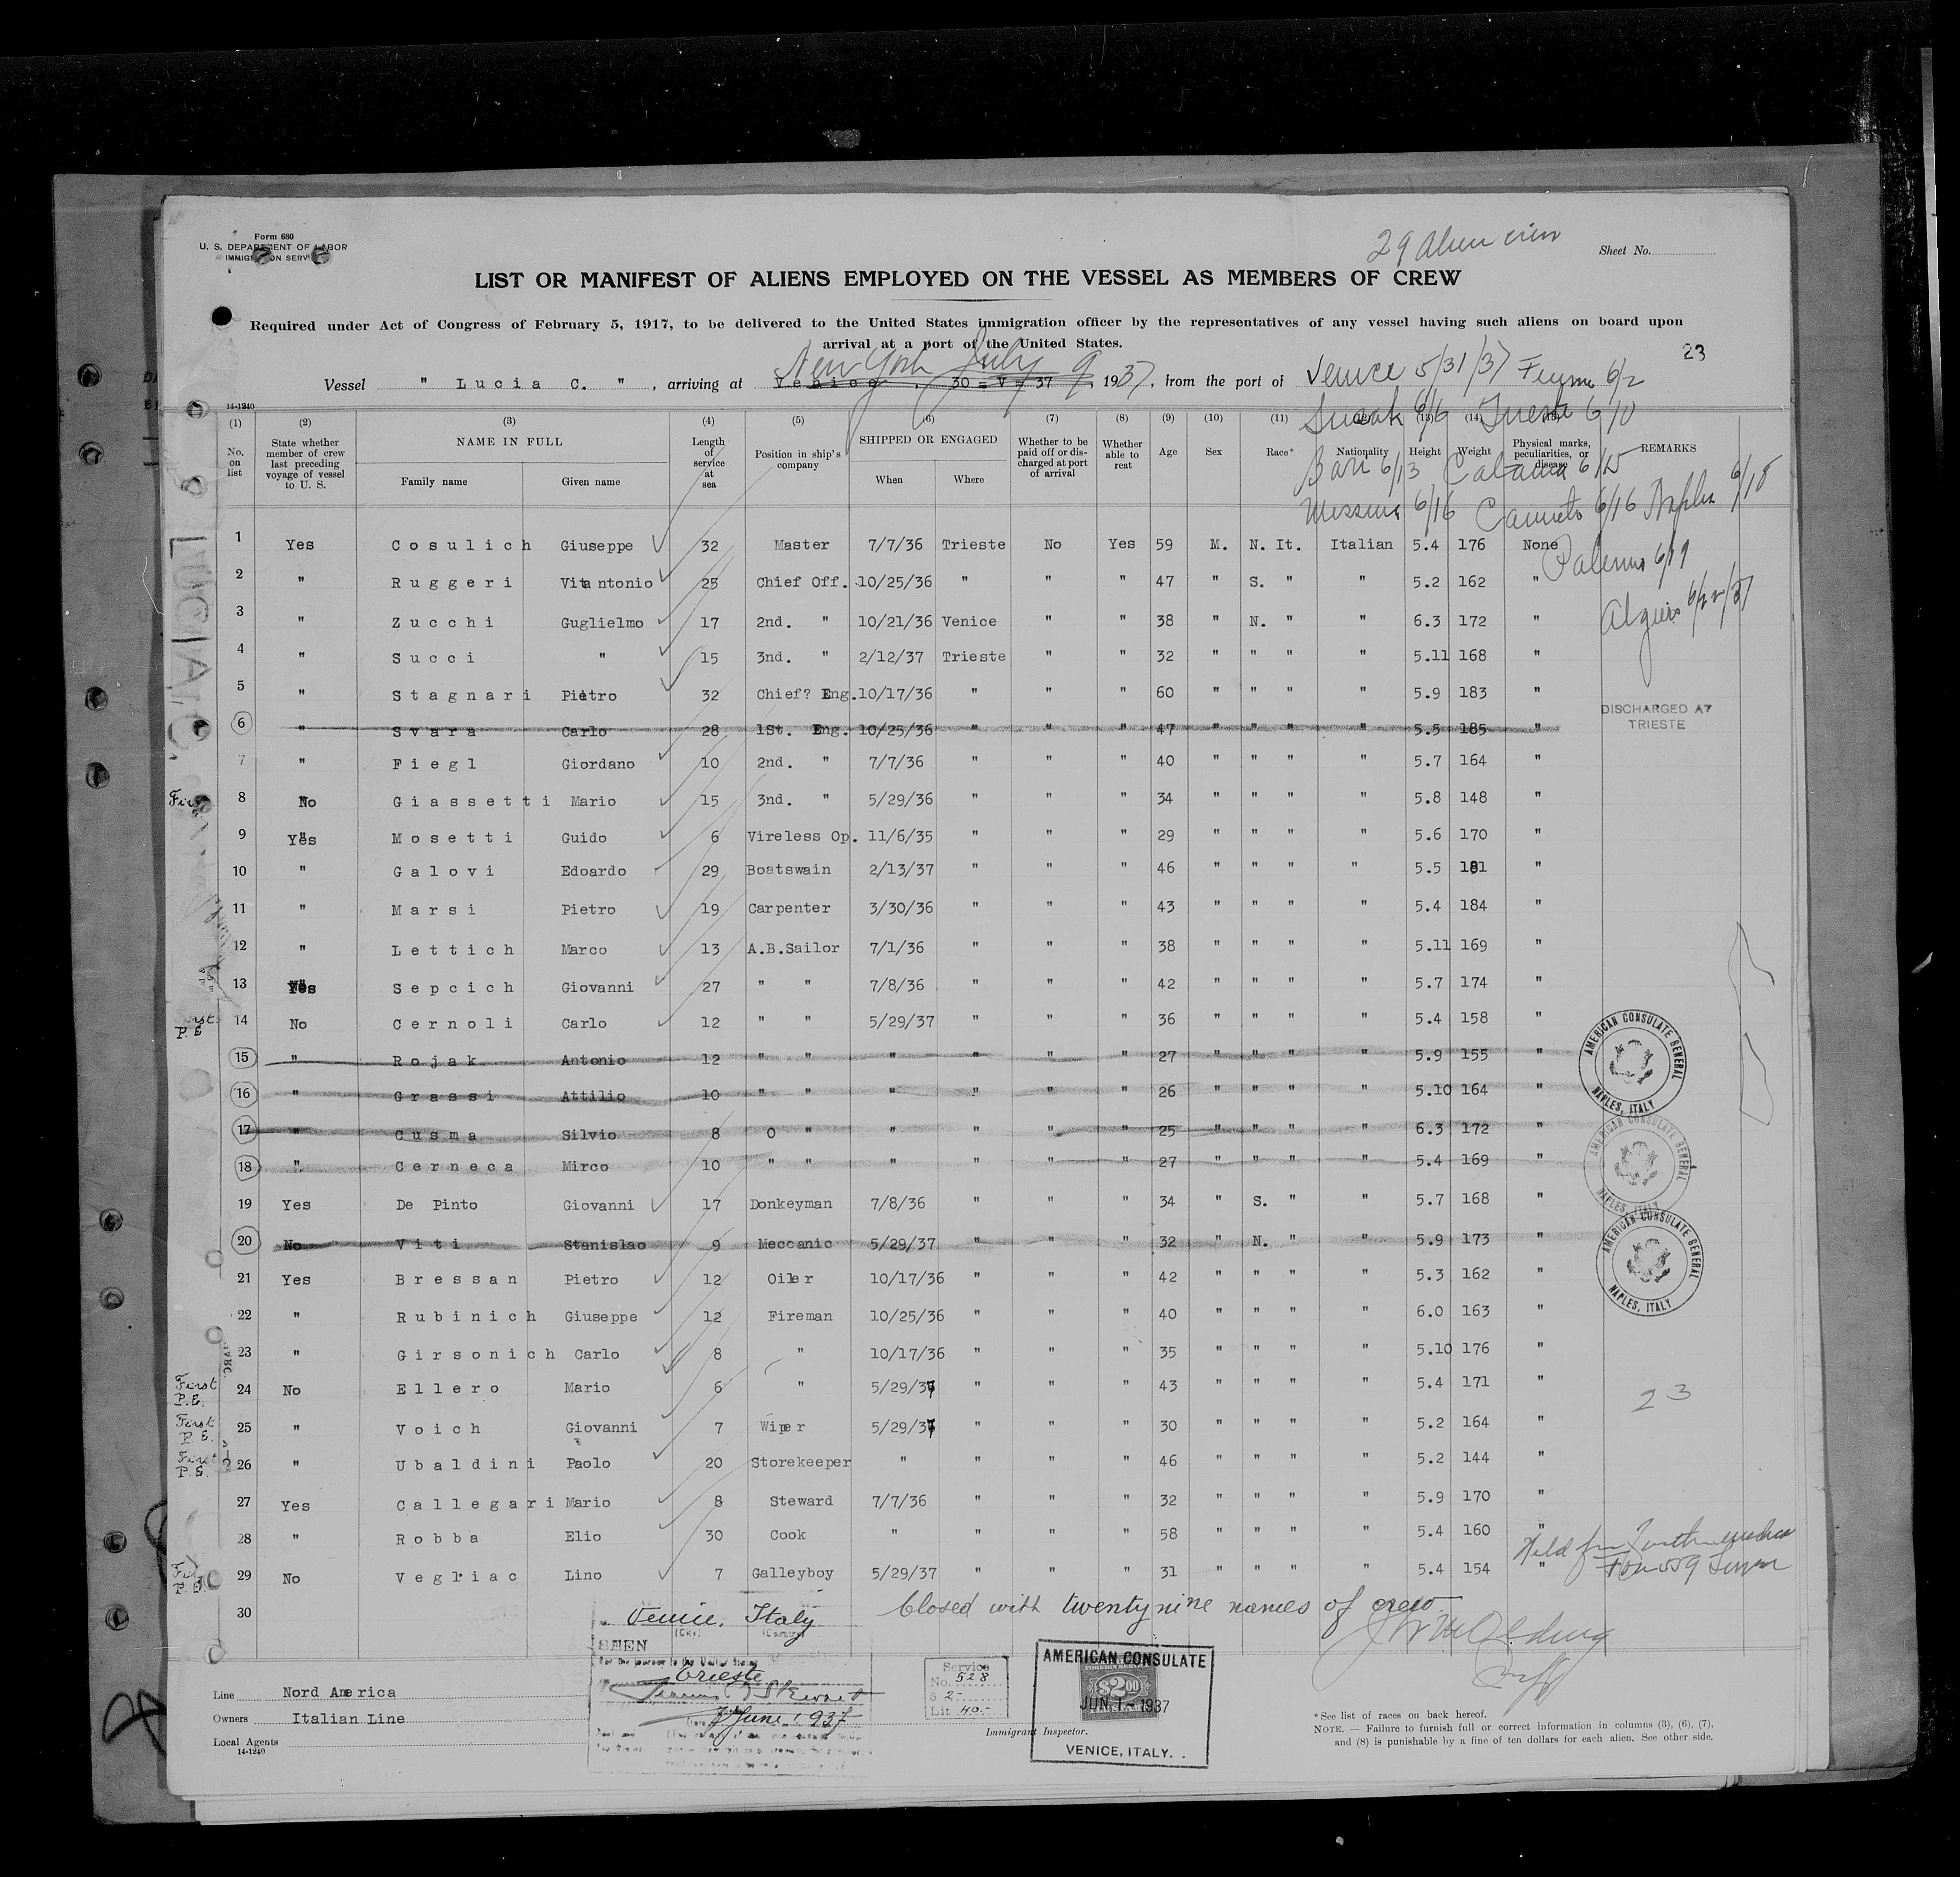 Form 680
U. S. DEPARTMENT OF LABOR
IMMIGRATION SERVICE
29 alien crew
Sheet No.
LIST OR MANIFEST OF ALIENS EMPLOYED ON THE VESSEL AS MEMBERS OF CREW
Required under Act of Congress of February 5, 1917, to be delivered to the United States immigration officer by the representatives of any vessel having such aliens on board upon
arrival at a port of the United States.
23
Vessel " Lucia C. ", arriving at Venice, 30 = V = 37 New York July 9, 1937, from the port of Venice 5/31/37 Fiume 6/2
Susak 6/6 Trieste 6/10
Bari 6/13 Catania 6/15
Messina 6/16 6/16 Naples 6/18
Palermo 6/19
Algiers
14-1240
(1) No. on list
(2) State whether member of crew last preceding voyage of vessel to U. S.
(3) NAME IN FULL Family name Given name
(4) Length of service at sea
(5) Position in ship's company
(6) SHIPPED OR ENGAGED When Where
(7) Whether to be paid off or discharged at port of arrival
(8) Whether able to reat
(9) Age
(10) Sex
(11) Race*
Nationality
(13) Height
(14) Weight
Physical marks, peculiarities, or disease
REMARKS
1 Yes Cosulich Giuseppe 32 Master 7/7/36 Trieste No Yes 59 M. N. It. Italian 5.4 176 None
2 " Ruggeri Vitantonio 25 Chief Off. 10/25/36 " " " 47 " S. " " 5.2 162 "
3 " Zucchi Guglielmo 17 2nd. " 10/21/36 Venice " " 38 " N. " " 6.3 172 "
4 " Succi " 15 3nd. " 2/12/37 Trieste " " 32 " " " " 5.11 168 "
5 " Stagnari Pietro 32 Chief? Eng. 10/17/36 " " " 60 " " " " 5.9 183 "
6 " Svara Carlo 28 1St. Eng. 10/25/36 " " " 47 " " " " 5.5 185 " DISCHARGED AT TRIESTE
7 " Fiegl Giordano 10 2nd. " 7/7/36 " " " 40 " " " " 5.7 164 "
8 No Giassetti Mario 15 3nd. " 5/29/36 " " " 34 " " " " 5.8 148 "
9 Yes Mosetti Guido 6 Vireless Op. 11/6/35 " " " 29 " " " " 5.6 170 "
10 " Galovi Edoardo 29 Boatswain 2/13/37 " " " 46 " " " " 5.5 181 "
11 " Marsi Pietro 19 Carpenter 3/30/36 " " " 43 " " " " 5.4 184 "
12 " Lettich Marco 13 A.B.Sailor 7/1/36 " " " 38 " " " " 5.11 169 "
13 Yes Sepcich Giovanni 27 " " 7/8/36 " " " 42 " " " " 5.7 174 "
P.E 14 No Cernoli Carlo 12 " " 5/29/37 " " " 36 " " " " 5.4 158 "
15 " Rojak Antonio 12 " " " " " " 27 " " " " 5.9 155 "
16 " Grassi Attilio 10 " " " " " " 26 " " " " 5.10 164 "
17 " Cusma Silvio 8 O " " " " " 25 " " " " 6.3 172 "
18 " Cerneca Mirco 10 " " " " " " 27 " " " " 5.4 169 "
19 Yes De Pinto Giovanni 17 Donkeyman 7/8/36 " " " 34 " S. " " 5.7 168 "
20 No Viti Stanislao 9 Meccanic 5/29/37 " " " 32 " N. " " 5.9 173 "
21 Yes Bressan Pietro 12 Oiler 10/17/36 " " " 42 " " " " 5.3 162 "
22 " Rubinich Giuseppe 12 Fireman 10/25/36 " " " 40 " " " " 6.0 163 "
23 " Girsonich Carlo 8 " 10/17/36 " " " 35 " " " " 5.10 176 "
First P.E. 24 No Ellero Mario 6 " 5/29/37 " " " 43 " " " " 5.4 171 "
First P.E. 25 " Voich Giovanni 7 Wiper 5/29/37 " " " 30 " " " " 5.2 164 "
First P.E. 26 " Ubaldini Paolo 20 Storekeeper " " " " 46 " " " " 5.2 144 "
27 Yes Callegari Mario 8 Steward 7/7/36 " " " 32 " " " " 5.9 170 "
28 " Robba Elio 30 Cook " " " " 58 " " " " 5.4 160 "
P.E. 29 No Vegliac Lino 7 Galleyboy 5/29/37 " " " 31 " " " " 5.4 154 "
30
AMERICAN CONSULATE GENERAL NAPLES, ITALY
AMERICAN CONSULATE GENERAL NAPLES, ITALY
AMERICAN CONSULATE GENERAL NAPLES, ITALY
23
Held for
Closed with twentynine names of crew
Venice, Italy
(City) (Country)
SEEN
For the journey to the United States
Trieste
1 June 1937
Service
No. 528
$ 2-
Lit 40.-
AMERICAN CONSULATE
FOREIGN SERVICE
$2.00
JUN 1 - 1937
VENICE, ITALY.
Immigrant Inspector.
Line Nord America
Owners Italian Line
Local Agents
14-1240
*See list of races on back hereof.
NOTE. — Failure to furnish full or correct information in columns (3), (6), (7),
and (8) is punishable by a fine of ten dollars for each alien. See other side.
LUCIA C.